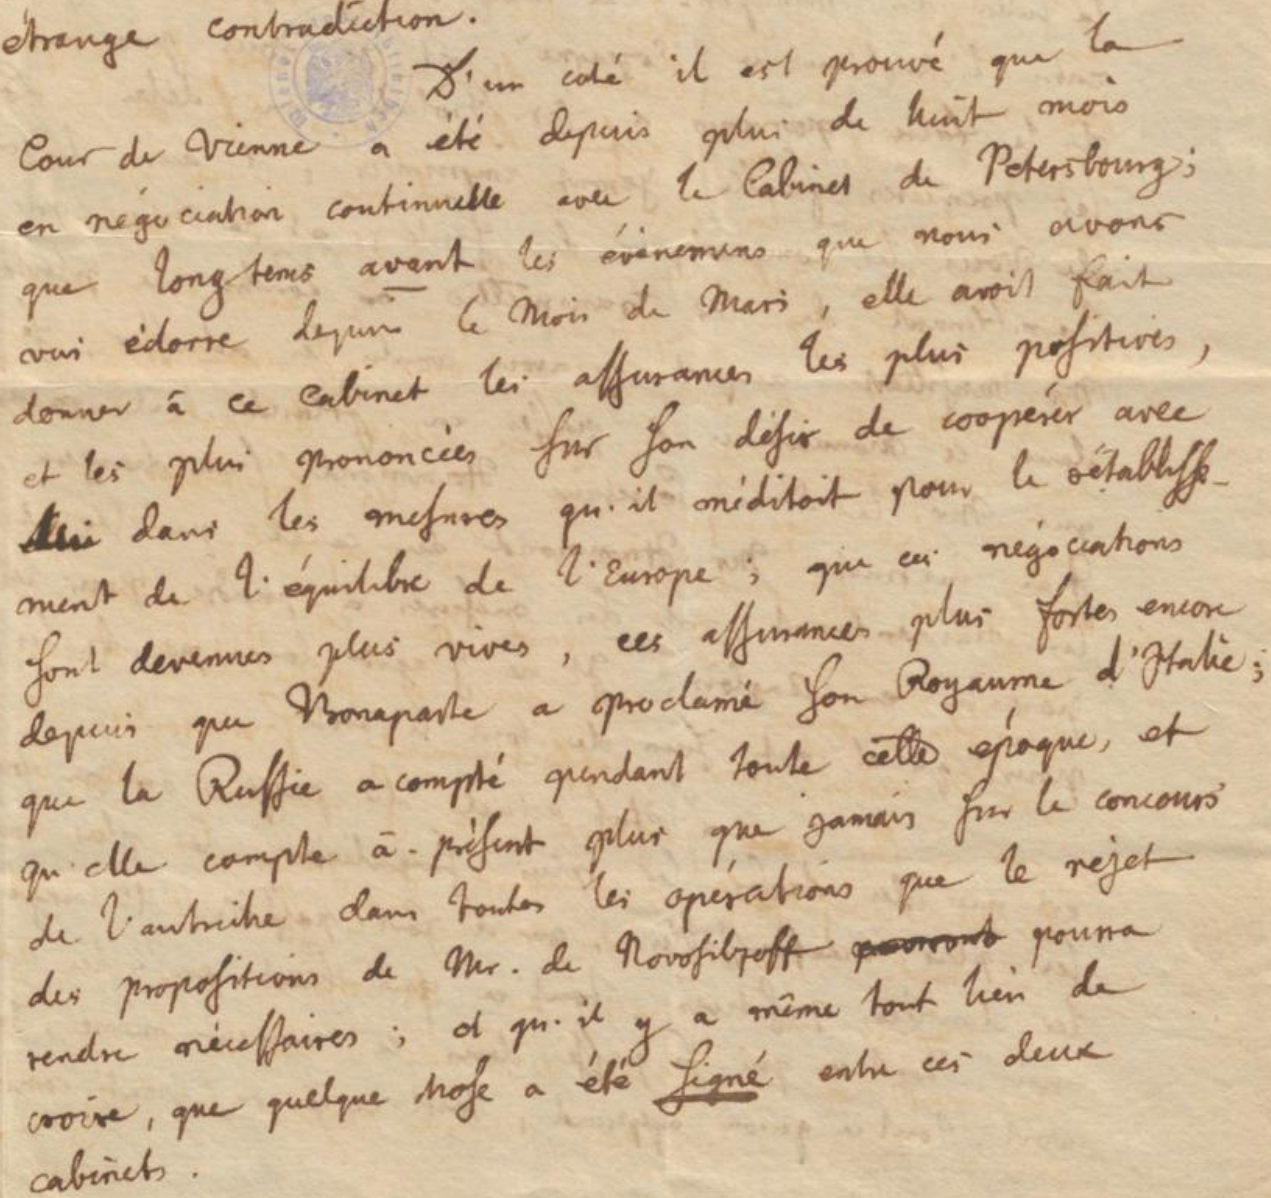 étrange contradiction.
D'un coté il est prouvé que la
Cour de Vienne a été depuis plus de huit mois
en négociation continuelle avec le Cabinet de Petersbourg;
que longtems avant les évènemens que nous avons
vus éclorre depuis le Mois de Mars, elle avoit fait
donner à ce Cabinet les assurances les plus positives,
et les plus prononcées sur son désir de coopérer avec
lui dans les mesures qu'il méditoit pour le rétablisse-
ment de l'équilibre de l'Europe; que ces négociations
sont devenues plus vives, ces assurances plus fortes encore
depuis que Bonaparte a proclamé son Royaume d'Italie;
que la Russie a compté pendant toute cette époque, et
qu'elle compte à-présent plus que jamais sur le concours
de l'autriche dans toutes les opérations que le rejet
des propositions de Mr. de Novosiltzoff pourront pourra
rendre nécessaires; et qu'il y a même tout lieu de
croire, que quelque chose a été signé entre ces deux
cabinets.